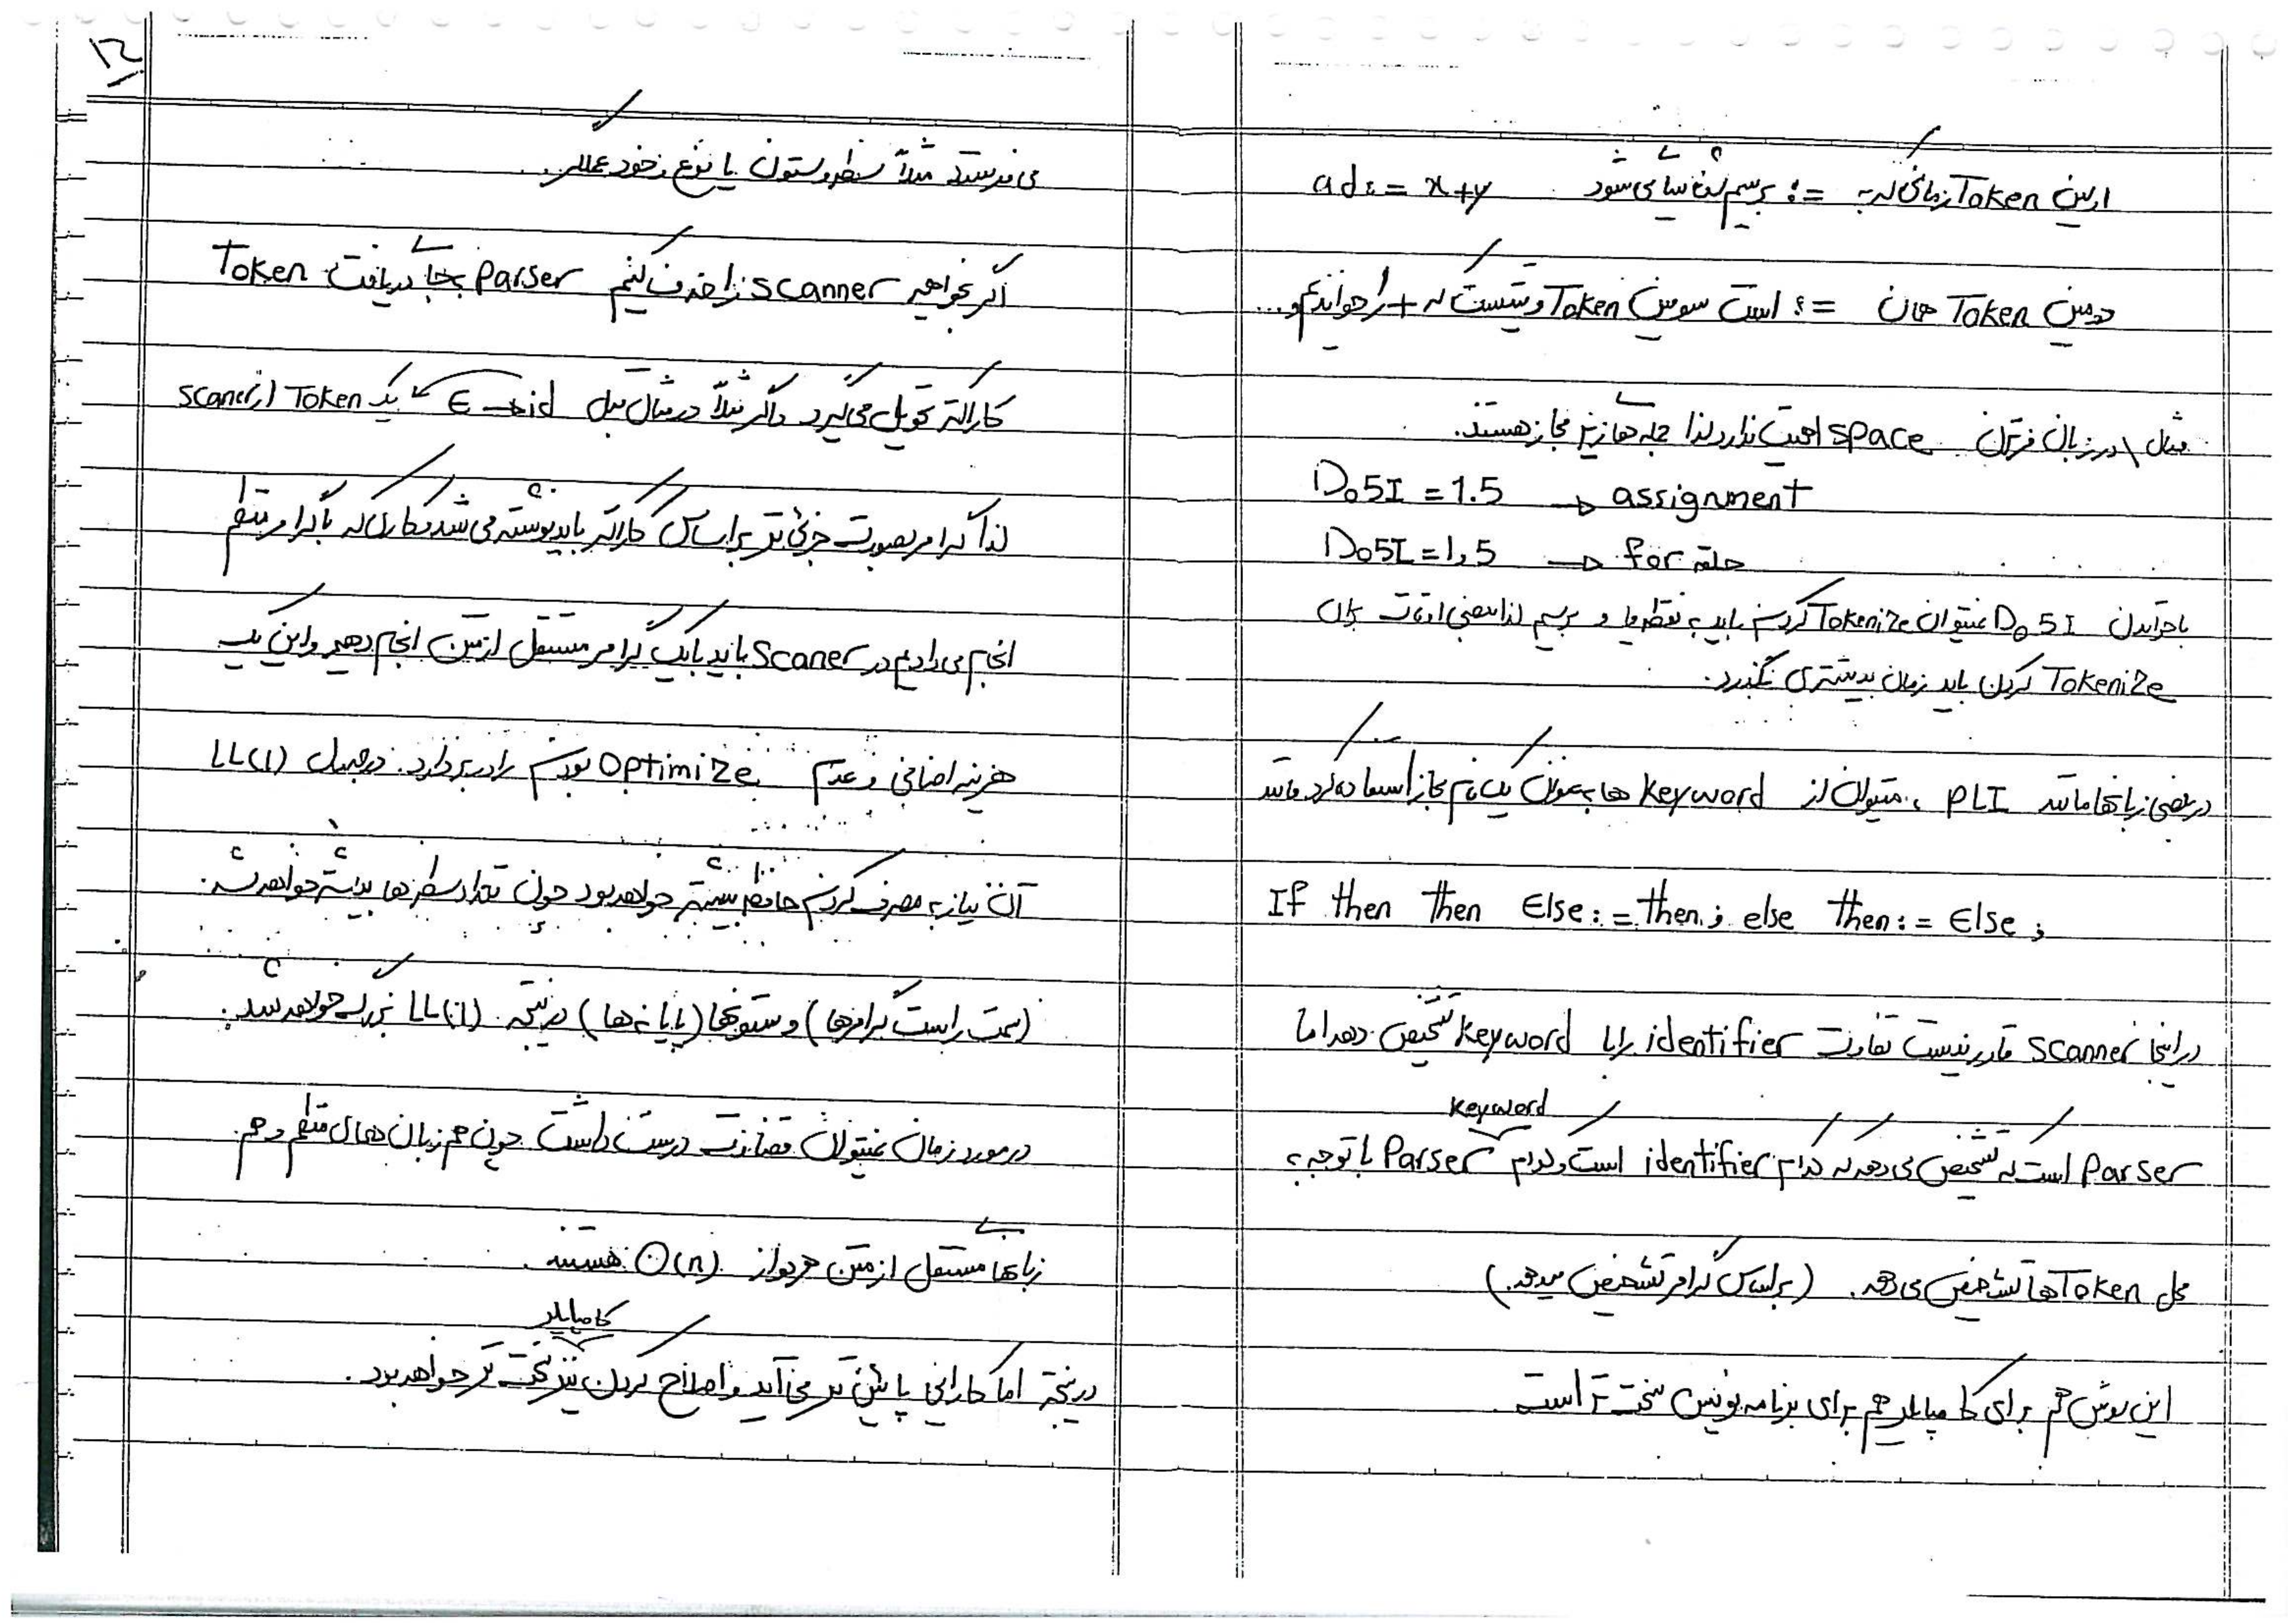 ۱۲
اولین Token زمانی که به =: برسیم شناسایی می‌شود ad := x+y
دومین Token همان =: است سومین Token وقتیست که + را خواندیم و ...
مثال ۱ در زبان فرترن space اهمیت ندارد لذا جمله های زیر مجاز هستند.
Do5I = 1.5 → assignment
Do5I = 1,5 → for حلقه
با خواندن Do5I نمیتوان Tokenize کرد باید به نقطه و یا , برسیم لذا بعضی اوقات برای
Tokenize کردن باید زمان بیشتری بگذرد.
در بعضی زبانها مانند PLI ، میتوان از Keyword ها به عنوان یک نام مجاز استفاده کرد مانند
If then then Else := then ; else then := Else ;
در اینجا scanner قادر نیست تفاوت identifier را با Keyword تشخیص دهد اما
Parser است که تشخیص می دهد که کدام identifier است و کدام Keyword Parser با توجه به
محل Token ها تشخیص می دهد. (براساس گرامر تشخیص میدهد.)
این روش هم برای کامپایلر هم برای برنامه نویس سخت تر است.
می فرستد مثلاً سطر و ستون یا نوع خود عملگر..
اگر بخواهیم scanner را حذف کنیم Parser بجای دریافت Token
کاراکتر تحویل می گیرد و اگر مثلاً در مثال قبل E → id یک Token از scaner
لذا گرامر بصورت جزئی تر براساس کاراکتر باید نوشته می شد و کاری که با گرامر منظم
انجام می دادیم در Scaner باید با یک گرامر مستقل از متن انجام دهیم و این یک
هزینه اضافی و عدم Optimize بودن را در بر دارد. در جدول LL(1)
آن نیاز به مصرف کردن حافظه بیشتر خواهد بود چون تعداد سطرها بیشتر خواهد شد.
(سمت راست گرامرها) و ستونها (پایانه ها) در نتیجه LL(1) بزرگ خواهد شد.
در مورد زمان نمیتوان قضاوت درست داشت چون هم زبان های منظم و هم
زبانهای مستقل از متن هر دو از O(n) هستند.
در نتیجه اما کارایی پائین تر می آید و اصلاح کردن کامپایلر نیز سخت تر خواهد بود.